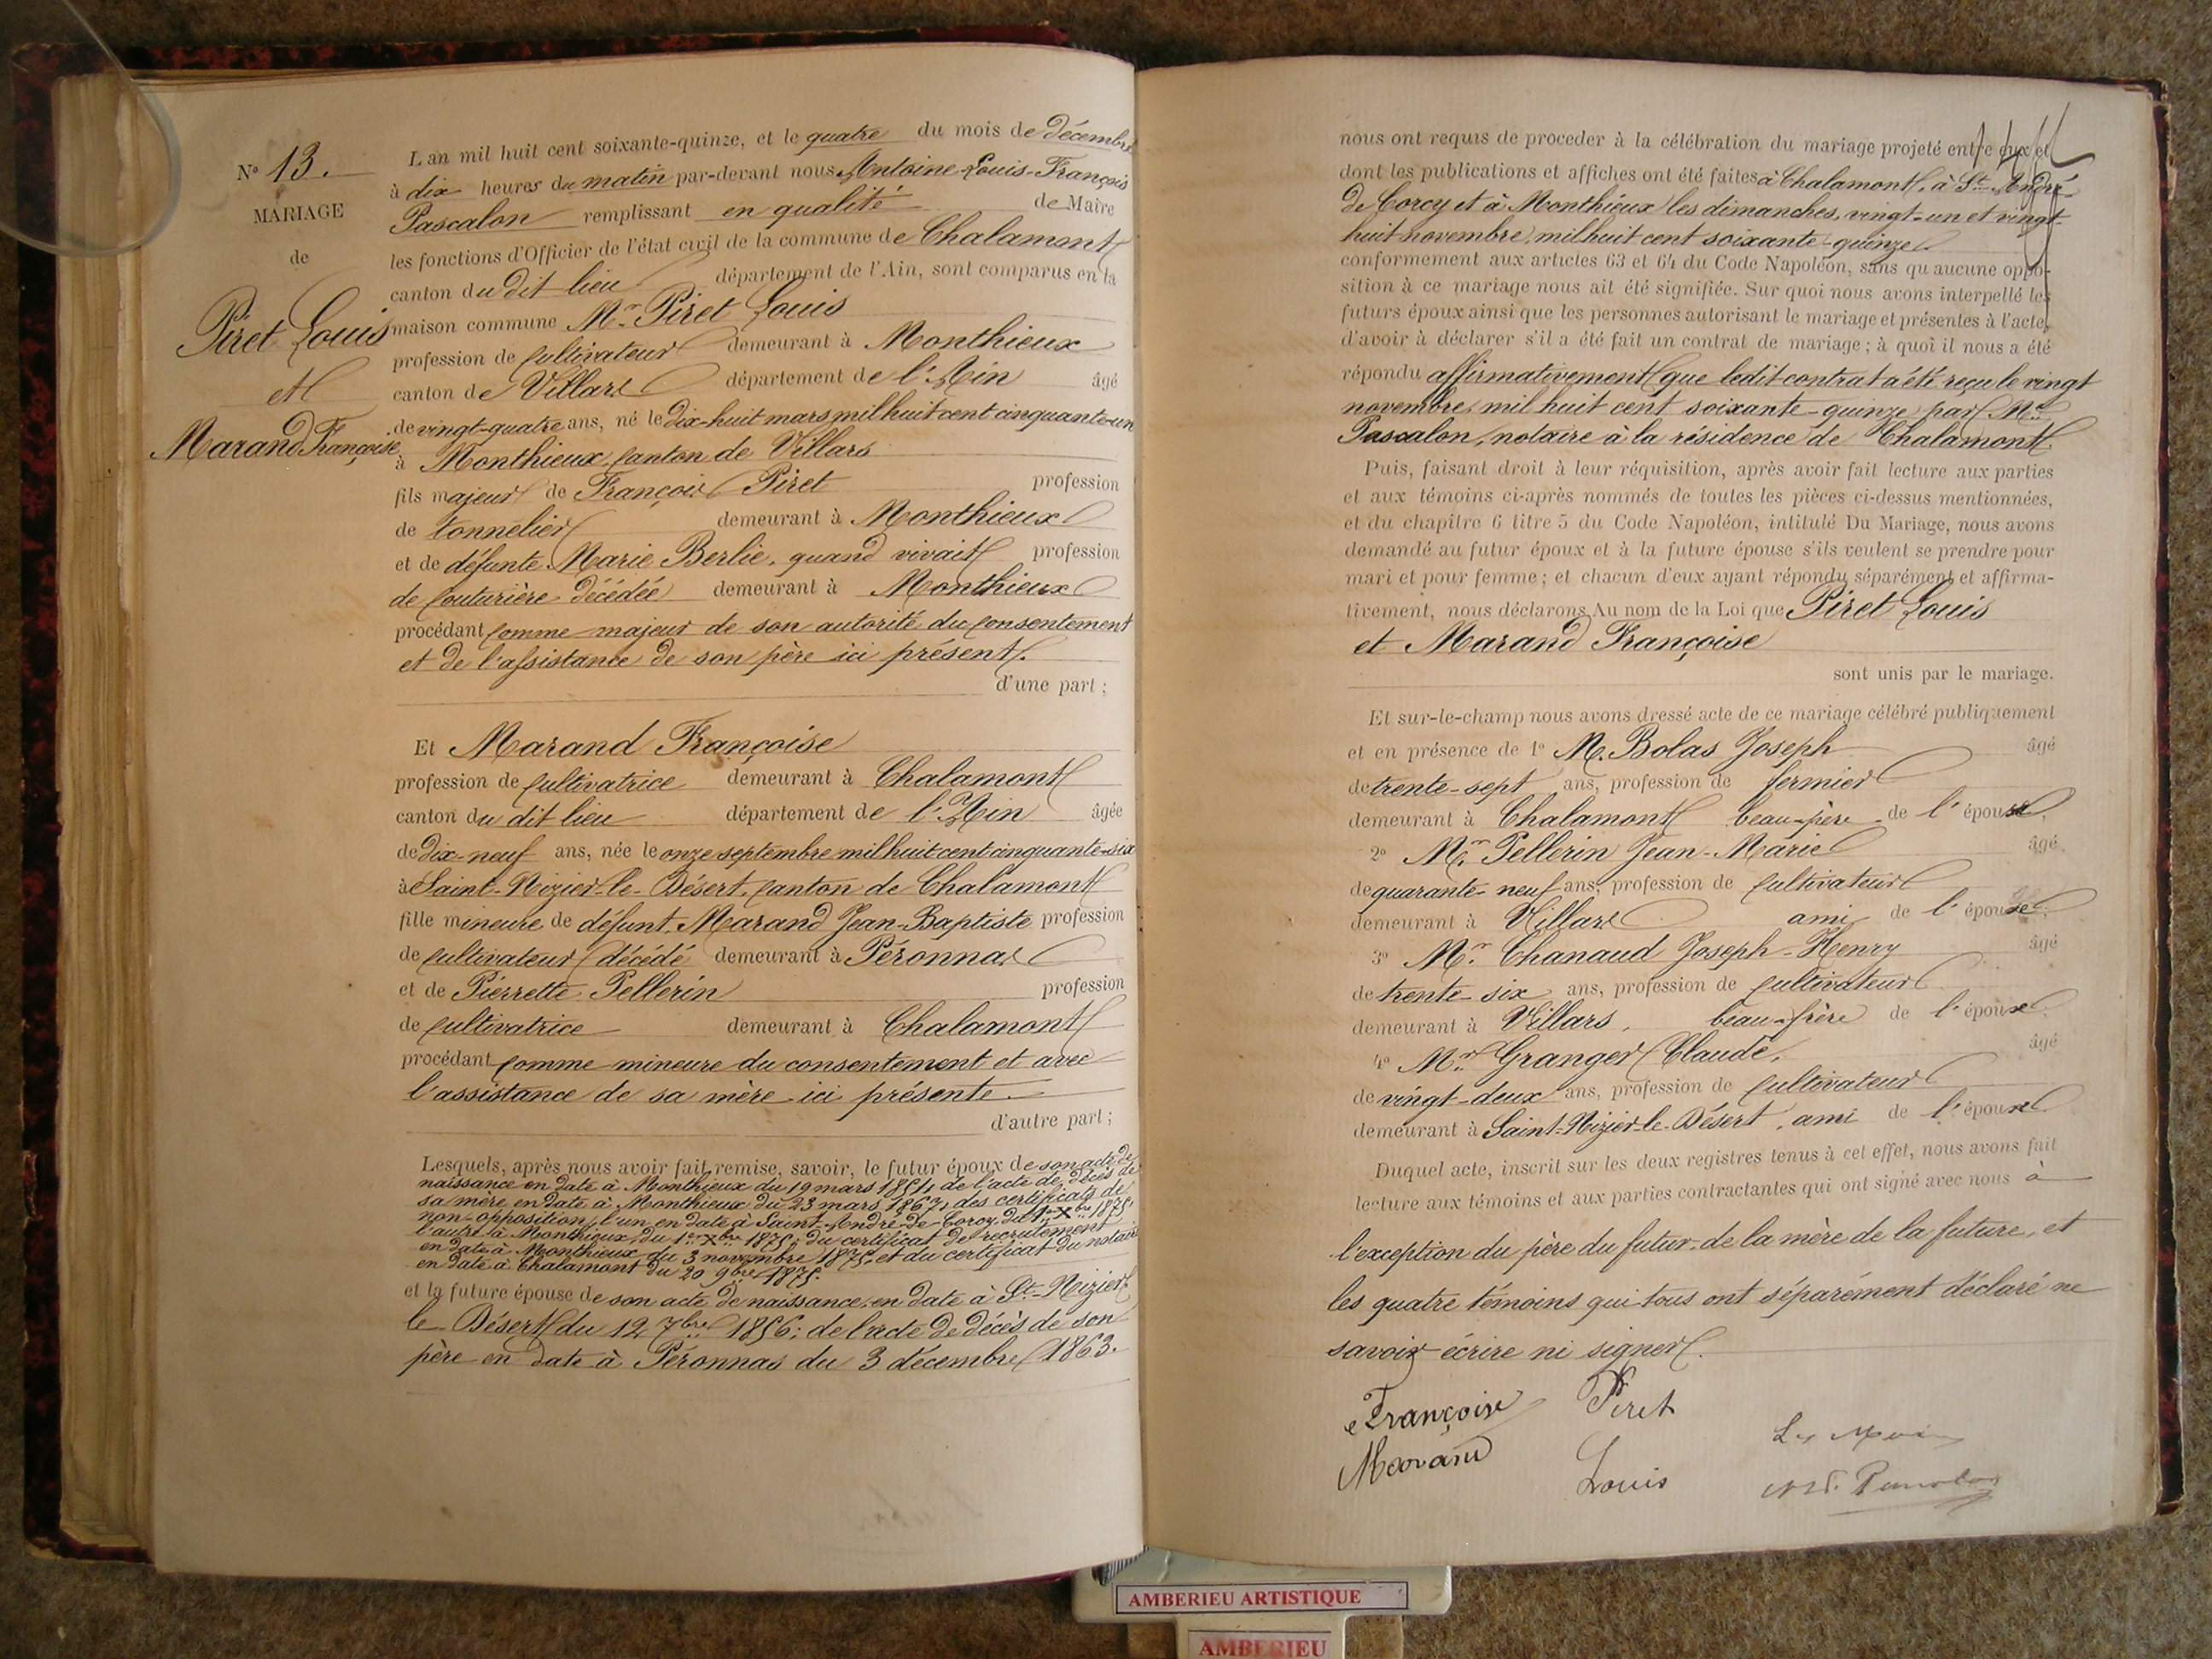 Nº 13.
MARIAGE
de
Piret Louis
et
Marand Françoise
L'an mil huit cent soixante-quinze, et le quatre du mois de Décembre
à dix heures du matin par-devant nous Antoine-Louis-François
Pascalon remplissant en qualité de Maire
les fonctions d'Officier de l'état civil de la commune de Chalamont
canton du dit lieu département de l'Ain, sont comparus en la
maison commune Mr. Piret Louis
profession de cultivateur demeurant à Monthieux
canton de Villars département de l'Ain âgé
de vingt-quatre ans, né le dix-huit mars mil huit cent cinquante-un
à Monthieux, canton de Villars
fils majeur de François Piret profession
de tonnelier demeurant à Monthieux
et de défunte Marie Berlie, quand vivait profession
de couturière décédée demeurant à Monthieux
procédant comme majeur de son autorité du consentement
et de l'assistance de son père ici présent.
d'une part ;
Et Marand Françoise
profession de cultivatrice demeurant à Chalamont
canton du dit lieu département de l'Ain âgée
de dix-neuf ans, née le onze septembre mil huit cent cinquante-six
à Saint-Nizier-le-Désert, canton de Chalamont
fille mineure de défunt Marand Jean-Baptiste profession
de cultivateur décédé demeurant à Péronnas
et de Pierrette Pellerin profession
de cultivatrice demeurant à Chalamont
procédant comme mineure du consentement et avec
l'assistance de sa mère ici présente.
d'autre part ;
Lesquels, après nous avoir fait remise, savoir, le futur époux de son acte de
naissance en date à Monthieux du 19 mars 1851, de l'acte de décès de
sa mère en date à Monthieux du 23 mars 1867, des certificats de
non-opposition, l'un en date à Saint-André-de-Corcy, du 1er Xbre 1875,
l'autre à Monthieux, du 1er Xbre 1875, du certificat de recrutement
en date à Monthieux du 3 novembre 1875, et du certificat du notaire
en date à Chalamont du 20 9bre 1875.
et la future épouse de son acte de naissance, en date à St-Nizier
le Désert du 12 7bre 1856; de l'acte de décès de son
père en date à Péronnas du 3 décembre 1863.
nous ont requis de proceder à la célébration du mariage projeté entre eux et
dont les publications et affiches ont été faites à Chalamont, à St-André-
de Corcy et à Monthieux les dimanches, vingt-un et vingt-
huit novembre, mil huit cent soixante-quinze
conformement aux articles 63 et 64 du Code Napoléon, sans qu'aucune oppo-
sition à ce mariage nous ait été signifiée. Sur quoi nous avons interpellé les
futurs époux ainsi que les personnes autorisant le mariage et présentes à l'acte,
d'avoir à déclarer s'il a été fait un contrat de mariage ; à quoi il nous a été
répondu affirmativement que ledit contrat a été reçu le vingt
novembre, mil huit cent soixante-quinze par Me
Pascalon, notaire à la résidence de Chalamont.
Puis, faisant droit à leur réquisition, après avoir fait lecture aux parties
et aux témoins ci-après nommés de toutes les pièces ci-dessus mentionnées,
et du chapitre 6 titre 5 du Code Napoléon, intitulé Du Mariage, nous avons
demandé au futur époux et à la future épouse s'ils veulent se prendre pour
mari et pour femme ; et chacun d'eux ayant répondu séparément et affirma-
tivement, nous déclarons Au nom de la Loi que Piret Louis
et Marand Françoise
sont unis par le mariage.
Et sur-le-champ nous avons dressé acte de ce mariage célébré publiquement
et en présence de 1º M. Bolas Joseph âgé
de trente-sept ans, profession de fermier
demeurant à Chalamont beau-père de l'épouse
2º Mr. Pellerin Jean-Marie âgé
de quarante-neuf ans, profession de cultivateur
demeurant à Villars ami de l'épouse
3º Mr. Chanaud Joseph-Henry âgé
de trente-six ans, profession de cultivateur
demeurant à Villars, beau-frère de l'époux
4º Mr. Granger Claude, âgé
de vingt-deux ans, profession de cultivateur
demeurant à Saint-Nizier-le-Désert, ami de l'époux
Duquel acte, inscrit sur les deux registres tenus à cet effet, nous avons fait
lecture aux témoins et aux parties contractantes qui ont signé avec nous à
l'exception du père du futur, de la mère de la future, et
les quatre témoins qui tous ont séparément déclaré ne
savoir écrire ni signer.
Françoise Piret
Marand Louis
AMBERIEU ARTISTIQUE
AMBERIEU